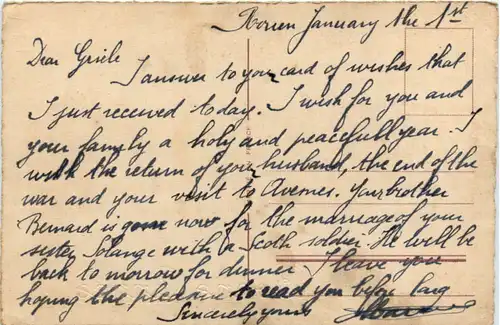 January the 1st
Dear Gisèle
I answer to your card of wishes that
I just received today. I wish for you and
your family a holy and peacefull year. I
wish the return of your husband, the end of the
war and your visit to Avesnes. Your brother
Bernard is gone now for the marriage of your
sister Solange with a Scoth soldier. He will be
back to morrow for dinner. I leave you
hoping the pleasure to read you before long
Sincerely yours